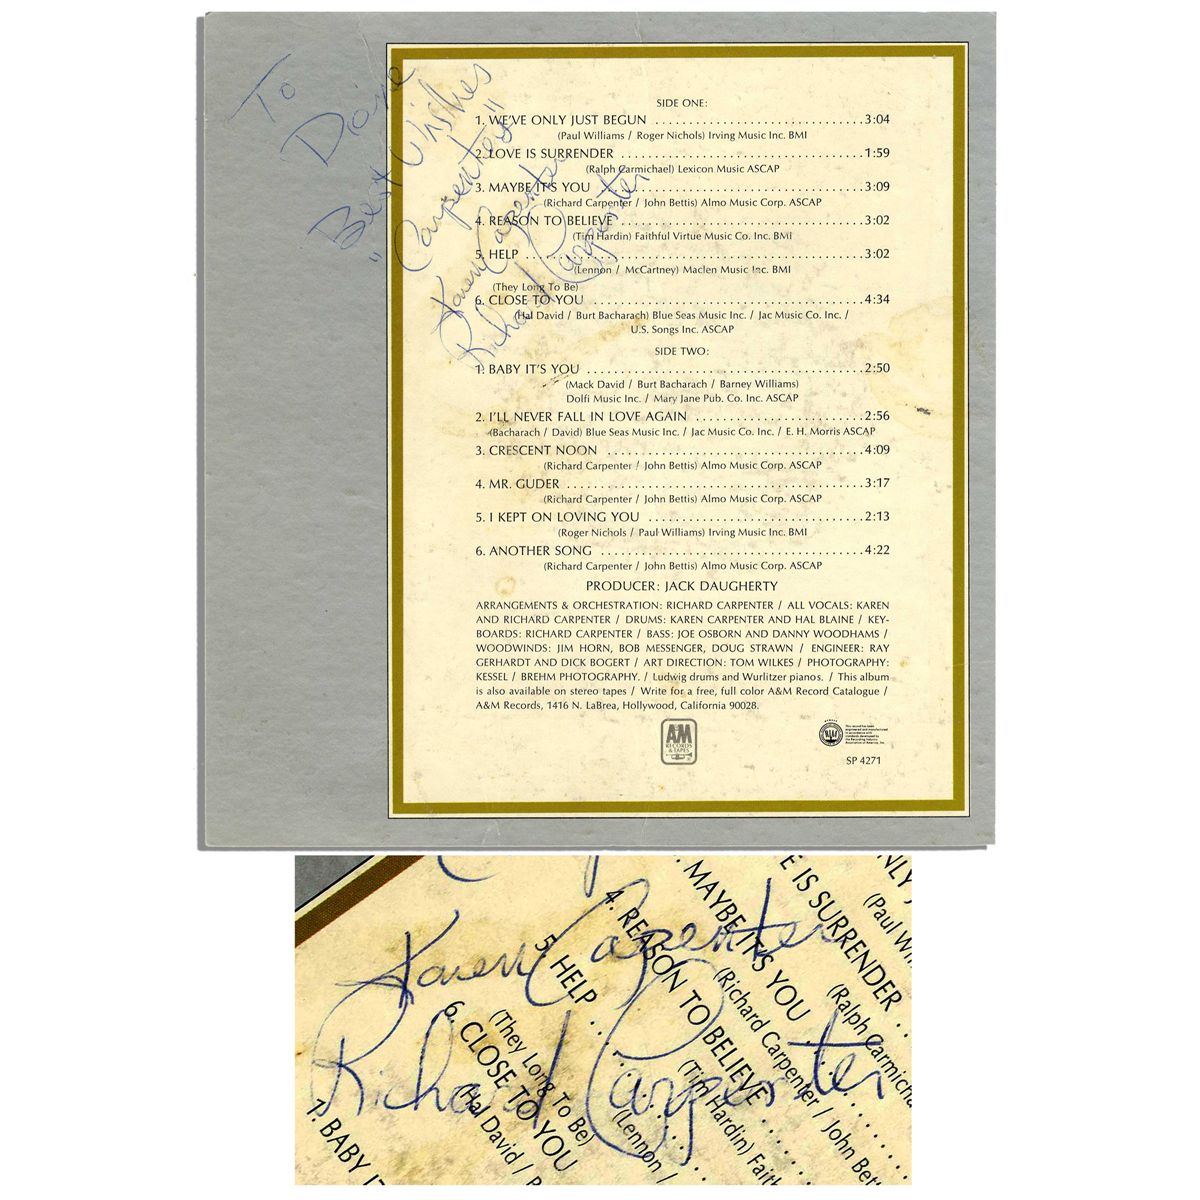 To
Diane
Best Wishes
"Carpenters"
Karen Carpenter
Richard Carpenter
SIDE ONE:
1. WE'VE ONLY JUST BEGUN ........................................ 3:04
(Paul Williams / Roger Nichols) Irving Music Inc. BMI
2. LOVE IS SURRENDER ........................................ 1:59
(Ralph Carmichael) Lexicon Music ASCAP
3. MAYBE IT'S YOU ........................................ 3:09
(Richard Carpenter / John Bettis) Almo Music Corp. ASCAP
4. REASON TO BELIEVE ........................................ 3:02
(Tim Hardin) Faithful Virtue Music Co. Inc. BMI
5. HELP ........................................ 3:02
(Lennon / McCartney) Maclen Music Inc. BMI
(They Long To Be)
6. CLOSE TO YOU ........................................ 4:34
(Hal David / Burt Bacharach) Blue Seas Music Inc. / Jac Music Co. Inc. /
U.S. Songs Inc. ASCAP
SIDE TWO:
1. BABY IT'S YOU ........................................ 2:50
(Mack David / Burt Bacharach / Barney Williams)
Dolfi Music Inc. / Mary Jane Pub. Co. Inc. ASCAP
2. I'LL NEVER FALL IN LOVE AGAIN ........................ 2:56
(Bacharach / David) Blue Seas Music Inc. / Jac Music Co. Inc. / E. H. Morris ASCAP
3. CRESCENT NOON ........................................ 4:09
(Richard Carpenter / John Bettis) Almo Music Corp. ASCAP
4. MR. GUDER ........................................ 3:17
(Richard Carpenter / John Bettis) Almo Music Corp. ASCAP
5. I KEPT ON LOVING YOU ................................ 2:13
(Roger Nichols / Paul Williams) Irving Music Inc. BMI
6. ANOTHER SONG ........................................ 4:22
(Richard Carpenter / John Bettis) Almo Music Corp. ASCAP
PRODUCER: JACK DAUGHERTY
ARRANGEMENTS & ORCHESTRATION: RICHARD CARPENTER / ALL VOCALS: KAREN
AND RICHARD CARPENTER / DRUMS: KAREN CARPENTER AND HAL BLAINE / KEY-
BOARDS: RICHARD CARPENTER / BASS: JOE OSBORN AND DANNY WOODHAMS /
WOODWINDS: JIM HORN, BOB MESSENGER, DOUG STRAWN / ENGINEER: RAY
GERHARDT AND DICK BOGERT / ART DIRECTION: TOM WILKES / PHOTOGRAPHY:
KESSEL / BREHM PHOTOGRAPHY. / Ludwig drums and Wurlitzer pianos. / This album
is also available on stereo tapes / Write for a free, full color A&M Record Catalogue /
A&M Records, 1416 N. LaBrea, Hollywood, California 90028.
AM
RECORDS
& TAPES
RIAA
This record has been
engineered and manufactured
in accordance with
standards developed by
the Recording Industry
Association of America, Inc.
SP 4271
Karen Carpenter
Richard Carpenter
NLY
(Paul Wil
E IS SURRENDER ..
(Ralph Carmicha
. MAYBE IT'S YOU ....
(Richard Carpenter / John Bett
4. REASON TO BELIEVE ....
(Tim Hardin) Faith
5. HELP ....
(Lennon /
(They Long To Be)
6. CLOSE TO YOU
(Hal David / B
1. BABY IT